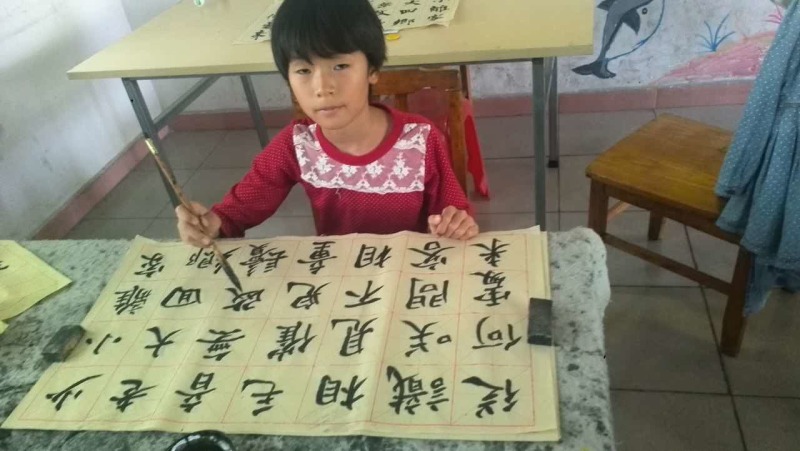 少小離家
老大回鄉
音無改鬢
毛催兒童
相見不相
識咲問客
從何處來